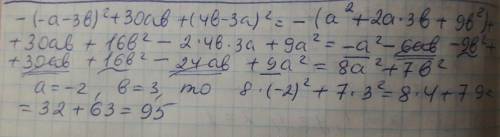 -(-a-3b)²+30ab+(4b-3a)²=-(a²+2a·3b+9b²)+
+30ab+16b²-2·4b·3a+9a²=-a²-6ab-9b²+
+30ab+16b²-24ab+9a²=8a²+7b²
a=-2, b=3, то 8·(-2)²+7·3²=8·4+7·9
=32+63=95